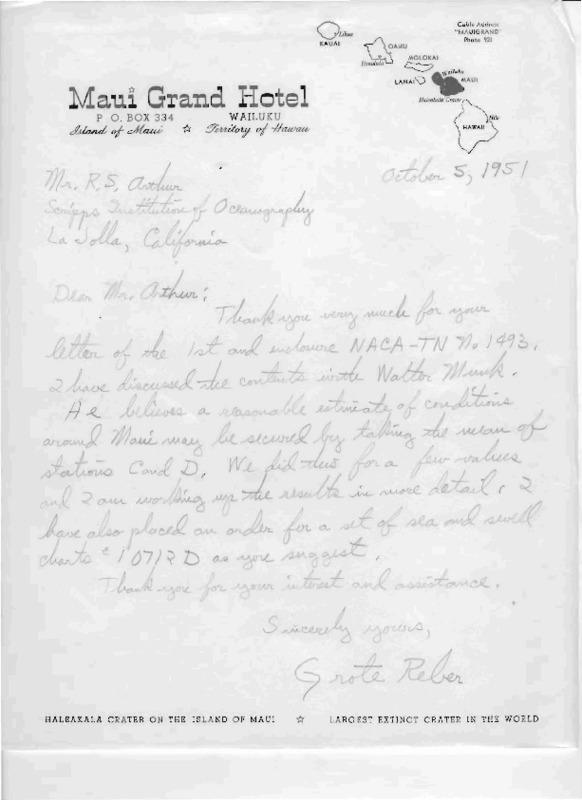 Cable Address
"MAUIGRAND"
Phone 921
Lihue
KAUAI
OAHU
Honolulu
MOLOKAI
LANAI
Wailuku
MAUI
Haleakala Crater
Hilo
HAWAII
Maui Grand Hotel
P. O. BOX 334 WAILUKU
Island of Maui ☆ Territory of Hawaii
October 5, 1951
Mr. R.S. Arthur
Scripps Institution of Oceanography
La Jolla, California
Dear Mr. Arthur:
Thank you very much for your
letter of the 1st and inclosure NACA-TN No 1493.
I have discussed the contents with Walter Munk.
He believes a reasonable estimate of conditions
around Maui may be secured by taking the mean of
stations C and D. We did this for a few values
and I am working up the results in more detail. I
have also placed an order for a set of sea and swell
charts 10712 D as you suggest.
Thank you for your interest and assistance.
Sincerely yours,
Grote Reber
HALEAKALA CRATER ON THE ISLAND OF MAUI ☆ LARGEST EXTINCT CRATER IN THE WORLD